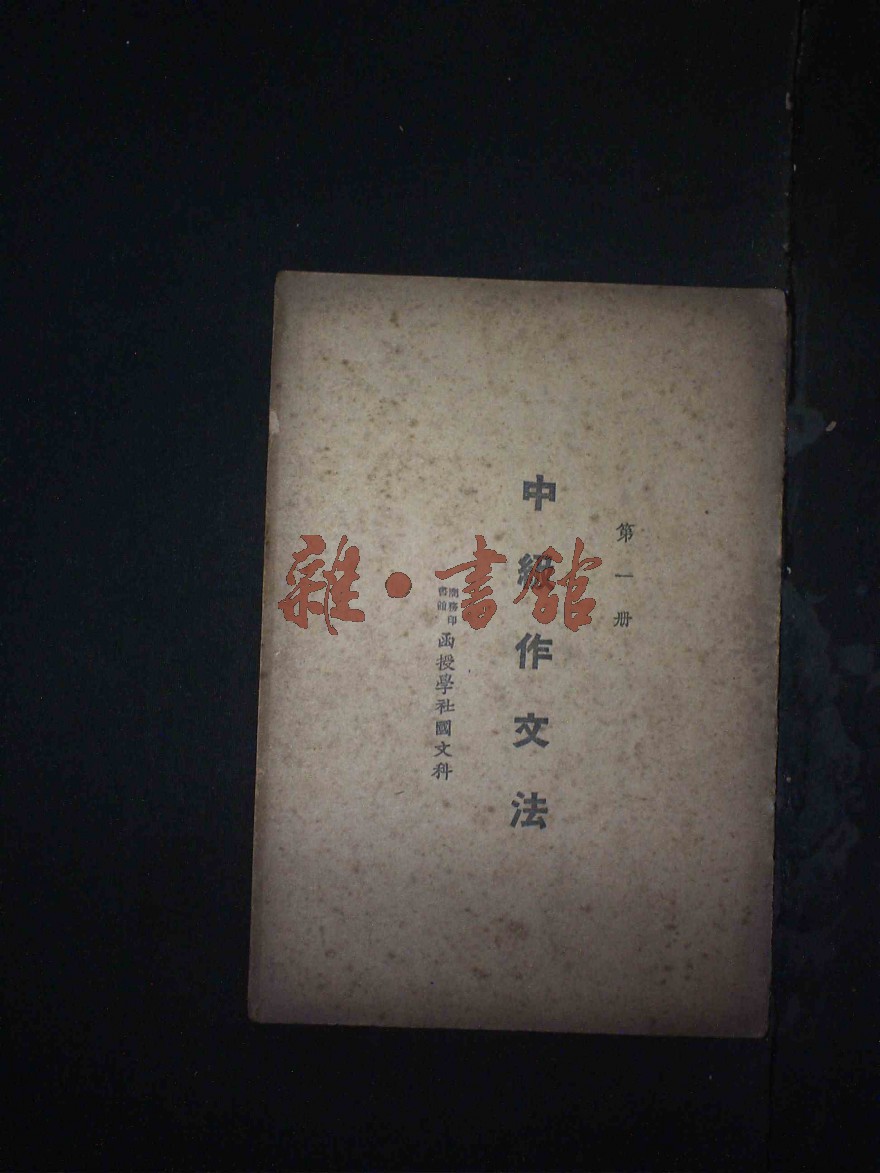 第一册
中級作文法
商務印書館函授學社國文科
雜·書館